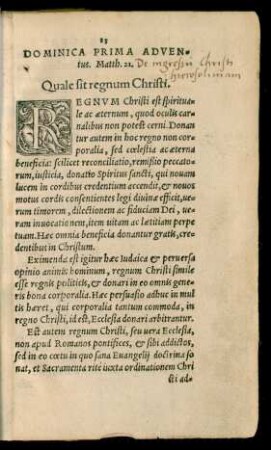 15
DOMINICA PRIMA ADVEN-
tus. Matth. 21. De ingressu Christi
hierosolimam
Quale sit regnum Christi.
REGNVM Christi est spiritua-
le ac æternum, quod oculis car-
nalibus non potest cerni. Donan
tur autem in hoc regno non cor-
poralia, sed cœlestia ac æterna
beneficia: scilicet reconciliatio, remissio peccato-
rum, iusticia, donatio Spiritus sancti, qui nouam
lucem in cordibus credentium accendit, & nouos
motus cordis consentientes legi diuinæ efficit, ue-
rum timorem, dilectionem ac fiduciam Dei, ue-
ram inuocationem, item uitam ac lætitiam perpe
tuam. Hæc omnia beneficia donantur gratis, cre-
dentibus in Christum.
Eximenda est igitur hæc Iudaica & peruersa
opinio animis hominum, regnum Christi simile
esse regnis politicis, & donari in eo omnis gene-
ris bona corporalia. Hæc persuasio adhuc in mul
tis hæret, qui corporalia tantum commoda, in
regno Christi, id est, Ecclesia donari arbitrantur.
Est autem regnum Christi, seu uera Ecclesia,
non apud Romanos pontifices, & sibi addictos,
sed in eo cœtu in quo sana Euangelij doctrina so
nat, et Sacramenta ritè iuxta ordinationem Chri
sti ad-